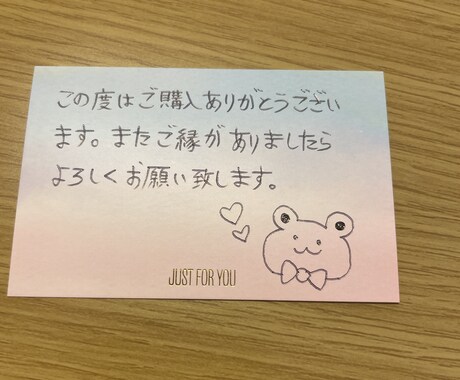 この度はご購入ありがとうござい
ます。またご縁がありましたら
よろしくお願い致します。
JUST FOR YOU